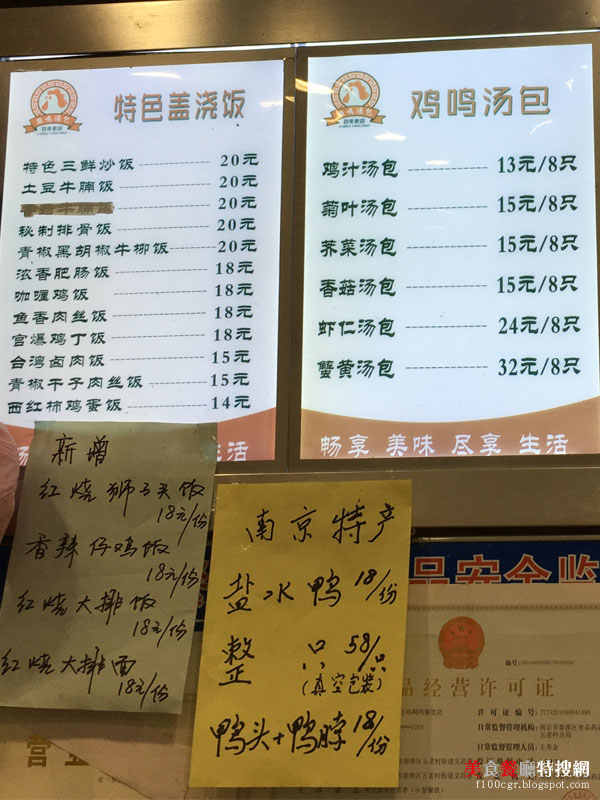 特色盖浇饭
百年老店
特色三鲜炒饭 20元
土豆牛腩饭 20元
香菇牛腩饭 20元
秘制排骨饭 20元
青椒黑胡椒牛柳饭 20元
浓香肥肠饭 18元
咖喱鸡饭 18元
鱼香肉丝饭 18元
宫爆鸡丁饭 18元
台湾卤肉饭 15元
青椒干子肉丝饭 15元
西红柿鸡蛋饭 14元
生活
鸡鸣汤包
百年老店
鸡汁汤包 13元/8只
菊叶汤包 15元/8只
荠菜汤包 15元/8只
香菇汤包 15元/8只
虾仁汤包 24元/8只
蟹黄汤包 32元/8只
畅享 美味 尽享 生活
新增
红烧狮子头饭
18元/份
香辣仔鸡饭
18元/份
红烧大排饭
18元/份
红烧大排面
18元/份
南京特产
盐水鸭 18/份
整 只 58/只
(真空包装)
鸭头+鸭脖 18/份
品安全监
品经营许可证
编号:
许可证编号:
日常监督管理机构:
日常监督管理人员:
营业
美食餐廳特搜網
f100cgr.blogspot.com